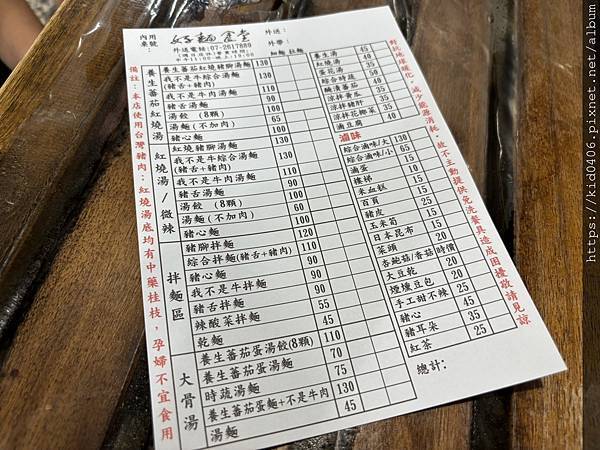 內用
桌號：
好麵食堂
外送：
外帶：
外送電話:07-2617889
細麵 拉麵
養生番茄紅燒湯
養生番茄紅燒豬腳湯麵 130
我不是牛綜合湯麵
(豬舌+豬肉) 130
我不是牛肉湯麵
豬舌湯麵
湯餃 (8顆)
湯麵(不加肉) 65
豬心麵
紅燒湯/微辣
紅燒豬腳湯麵 130
我不是牛綜合湯麵
(豬舌+豬肉)
我不是牛肉湯麵 110
豬舌湯麵 90
湯餃 (8顆) 100
湯麵(不加肉) 60
豬心麵 100
拌麵區
豬腳拌麵 120
綜合拌麵(豬舌+豬肉) 110
豬心麵 90
我不是牛拌麵 90
豬舌拌麵 90
辣酸菜拌麵 55
乾麵 45
大骨湯
養生番茄蛋湯餃(8顆) 110
養生番茄蛋湯麵 70
時蔬湯麵 75
養生番茄蛋麵+不是牛肉 130
湯麵 45
養生湯 45
紅燒湯 40
蛋花湯 35
綜合時蔬 50
醃漬番茄
涼拌黃瓜
涼拌豬肝
涼拌花椰菜
滷豆腐 40
滷味
綜合滷味/大 130
綜合滷味/小 65
滷蛋 15
樓梯
米血糕 15
百頁
豬皮
玉米筍 15
日本昆布 15
菜頭 20
杏鮑菇/香菇 時價
大豆乾 20
煙燻豆包 20
手工甜不辣
豬心 45
豬耳朵 35
紅茶 25
總計：
備註：本店使用台灣豬肉；紅燒湯底均有中藥桂枝，孕婦不宜食用
對抗地球暖化，減少能源消耗，故不主動提供免洗餐具造成困擾敬請見諒
https://kid0406.pixnet.net/album